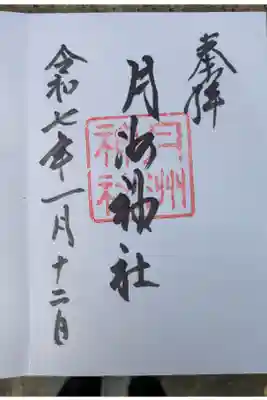 奉拝
月洲神社
令和七年一月十二日
月洲
神社